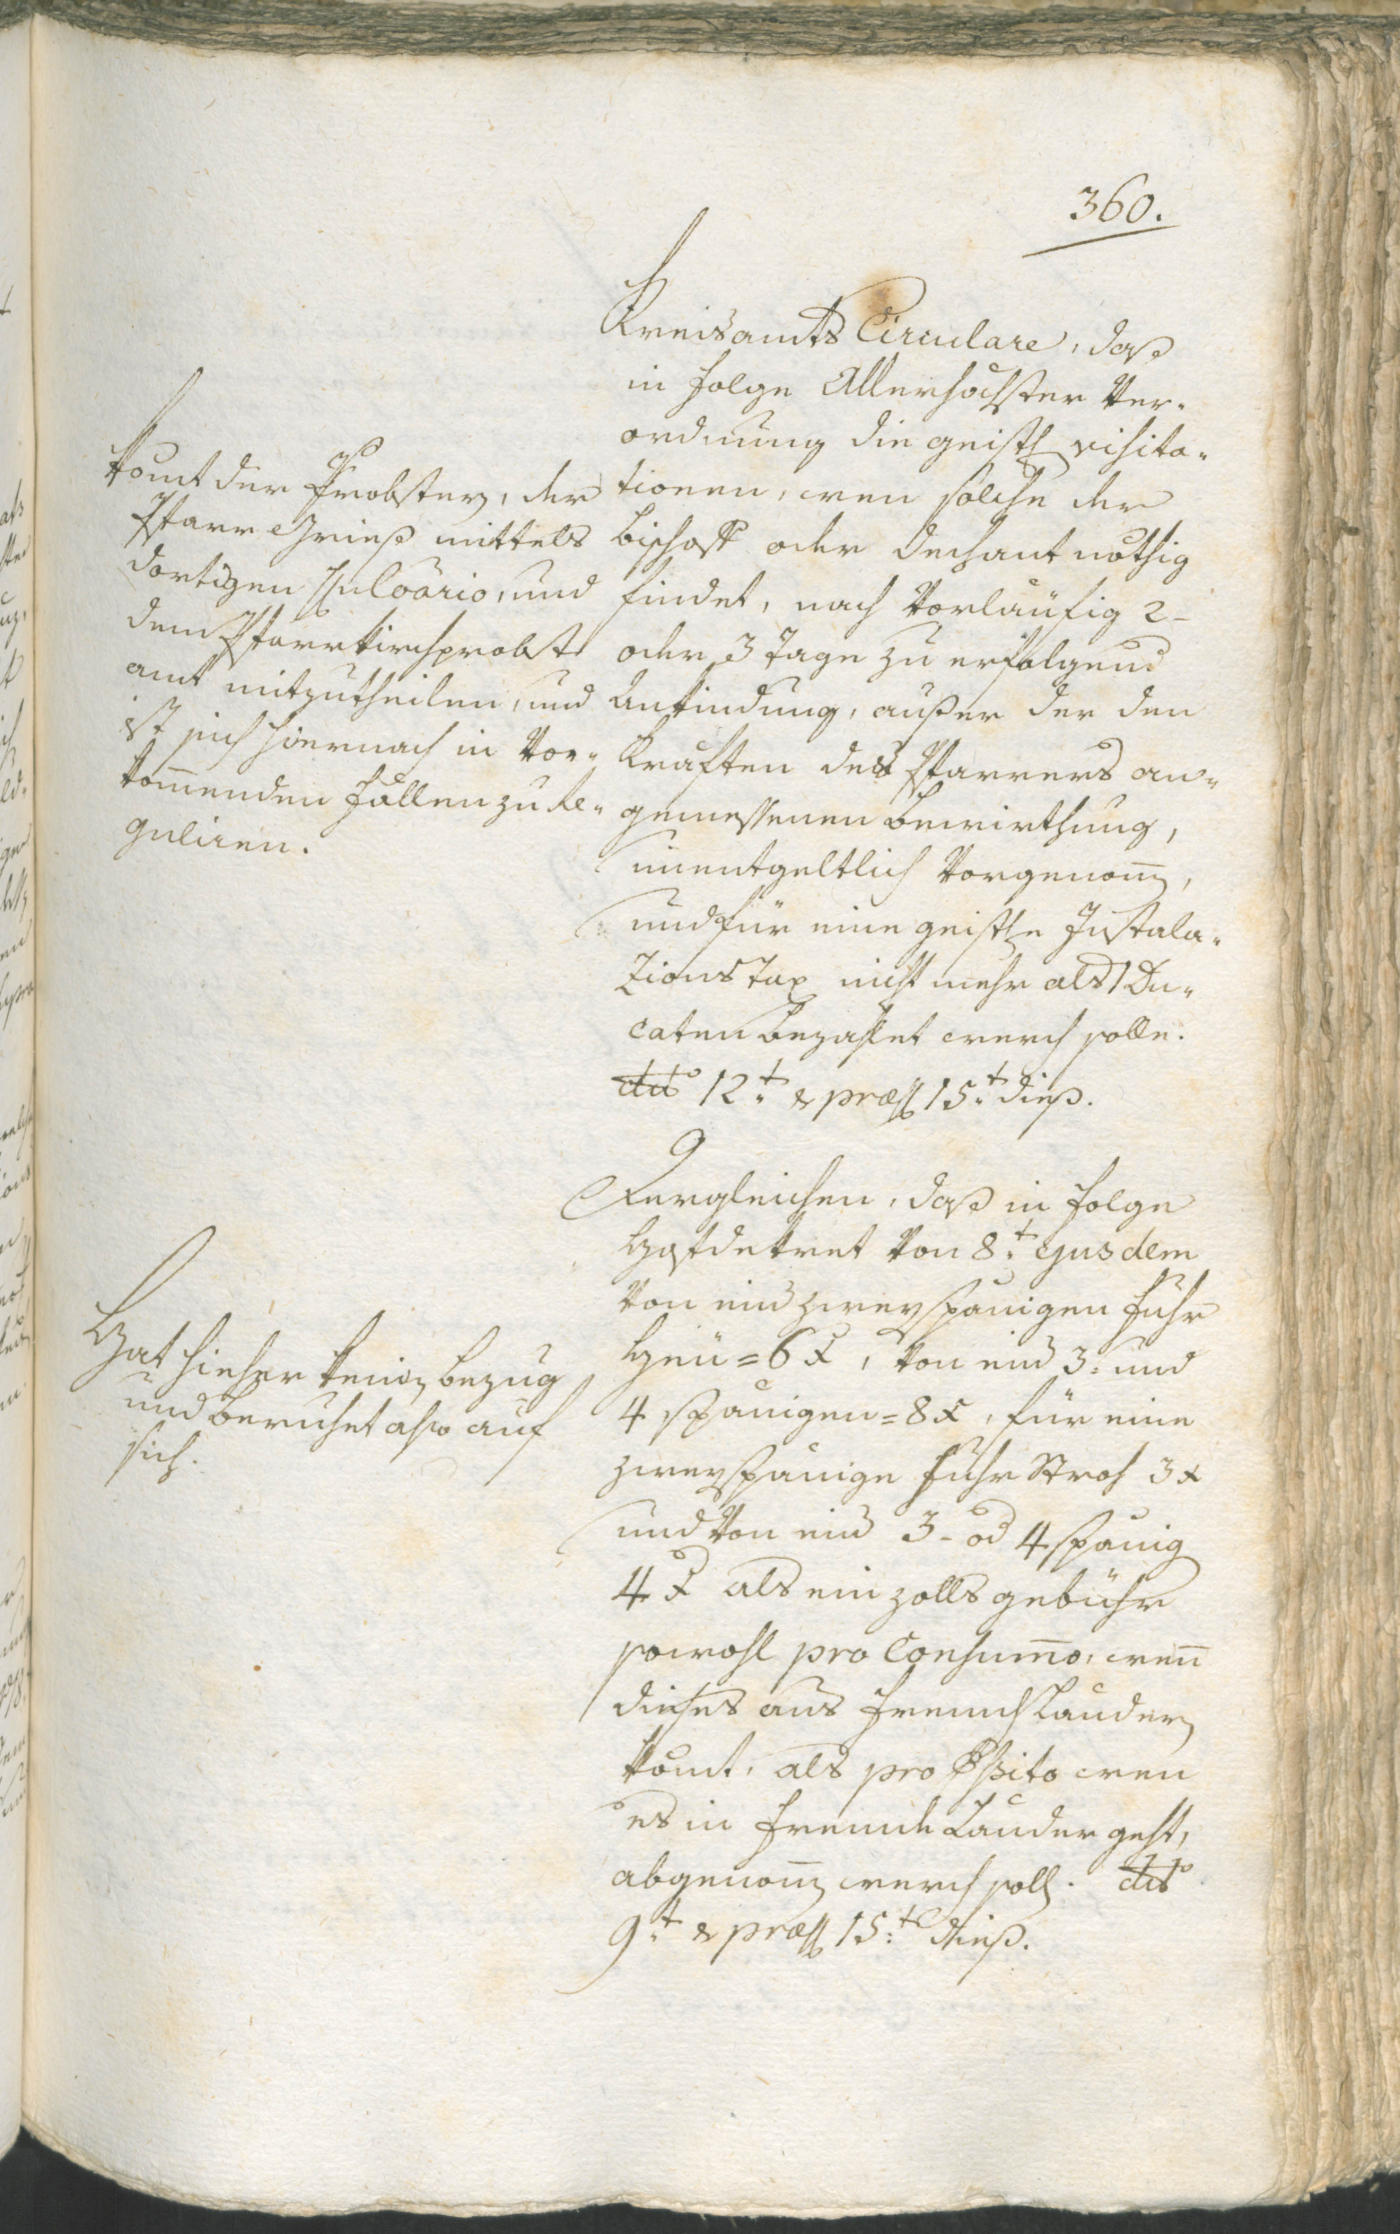 360.
Kreisamts Circulare, daß
in Folge Allerhöchster Ver-
ordnung die geistl visita-
tionen, wen solche der
Bischoff oder Dechant nöthig
findet, nach Vorläufig 2-
oder 3 Tage zu erfolgend
Ankündung, außer der den
Kräften des Pfarrers an-
gemessenen bewirthung,
unentgeltlich Vorgenom̅,
und für eine geistle Instala-
zions Tax nicht mehr als 1 Du-
caten bezahlet werd solle.
dto 12t & præs 15t dieß.
Komt der Probstey, der
Pfarr Grieß mittels
dortigen, und
dem Pfarrkirchprobst
amt mitzutheilen, und
ist sich hiernach in Vor-
kom̅enden Fällen zu Re-
guliren.
Dergleichen, daß in Folge
Hofdekret von 8t ejusdem
von eind zweyspänigen Fuhr
Heu = 6 x, von eind 3- und
4 spänigen = 8 x, für eine
zweyspänige Fuhr Stroh 3 x
und von eind 3- od 4 spänig
4 x als ein zolls gebühr
sowohl pro Consum̅o, wen̅
dieses aus fremd Länder
komt, als pro Essito wen
es in fremde Länder geht,
abgenom̅ werd soll. dto
9t & præs 15t dieß.
Hat hieher kein bezug
und beruhet also auf
sich.